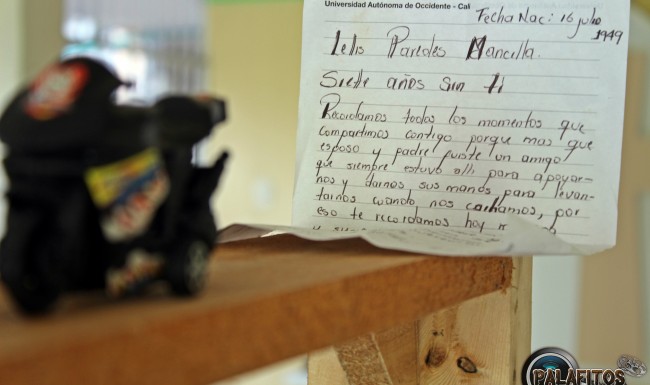 Universidad Autónoma de Occidente - Cali
Fecha Nac: 16 julio
1949
Lelis Paredes Mancilla.
Siete años sin ti
Recordamos todos los momentos que
compartimos contigo porque mas que
esposo y padre fuiste un amigo
que siempre estuvo alli para apoyar-
nos y darnos sus manos para levan-
tarnos cuando nos caiamos, por
eso te recordamos hoy
PALAFITOS